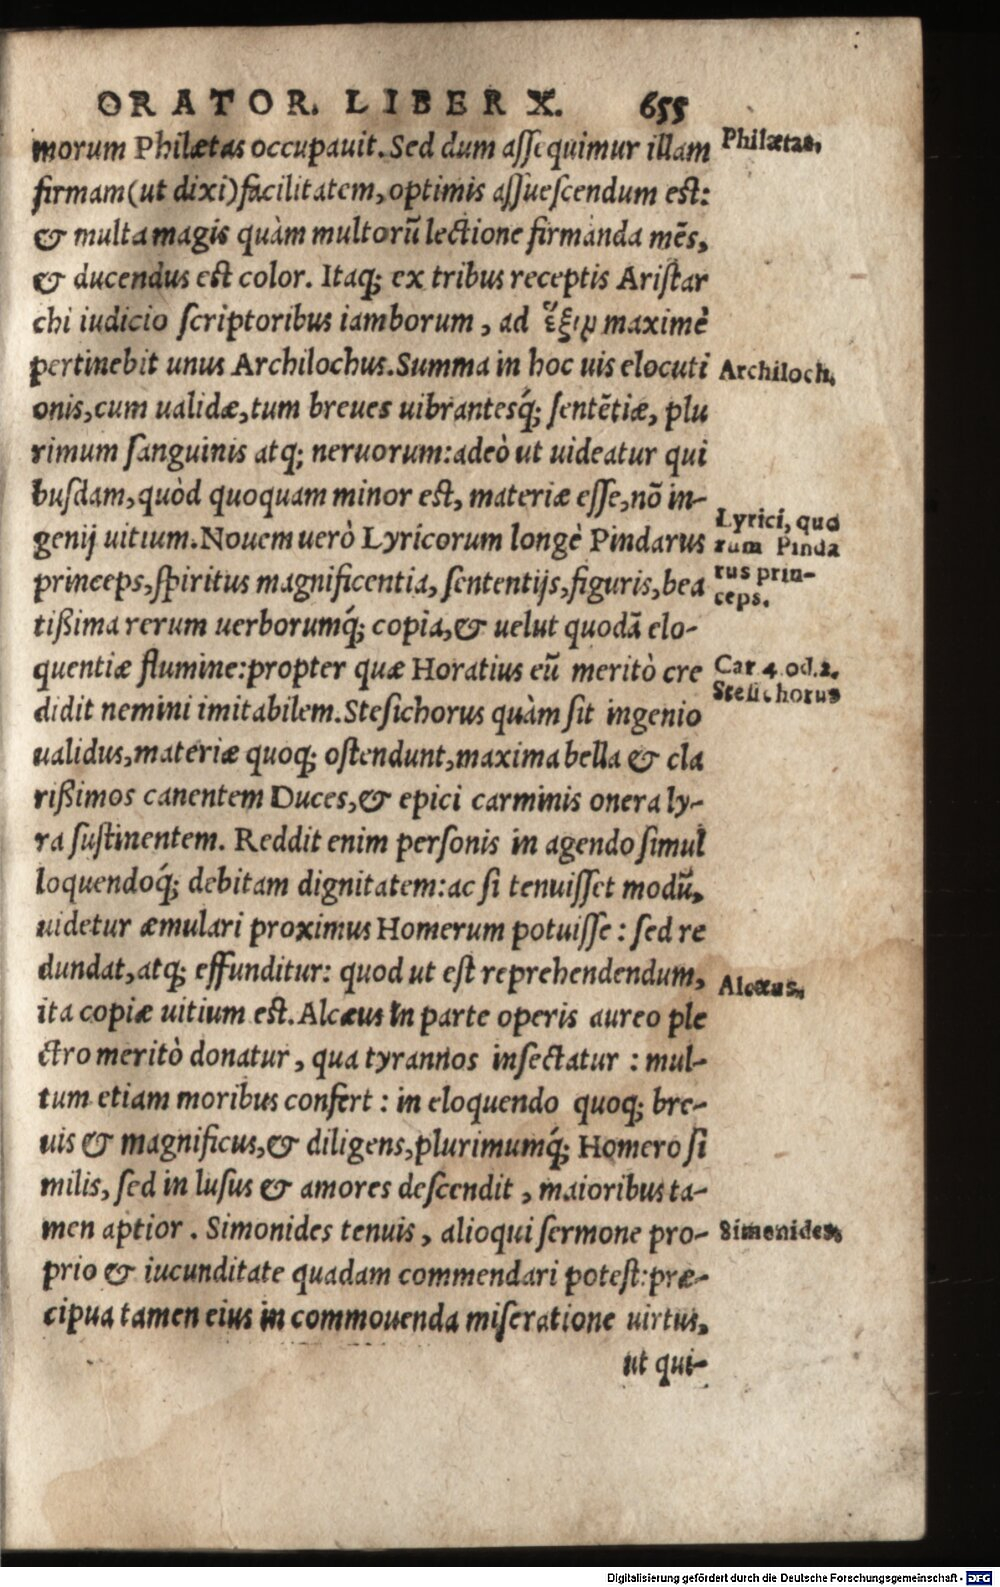 ORATOR. LIBER X. 655
morum Philætas occupauit. Sed dum assequimur illam
firmam (ut dixi) facilitatem, optimis assuescendum est:
& multa magis quàm multorũ lectione firmanda mẽs,
& ducendus est color. Itaq; ex tribus receptis Aristar
chi iudicio scriptoribus iamborum, ad ἕξιν maximè
pertinebit unus Archilochus. Summa in hoc uis elocuti
onis, cum ualidæ, tum breues uibrantesq́; sentẽtiæ, plu
rimum sanguinis atq; neruorum: adeò ut uideatur qui
busdam, quòd quoquam minor est, materiæ esse, nõ in-
genij uitium. Nouem uerò Lyricorum longè Pindarus
princeps, spiritus magnificentia, sententijs, figuris, bea
tißima rerum uerborumq́; copia, & uelut quodã elo-
quentiæ flumine: propter quæ Horatius eũ meritò cre
didit nemini imitabilem. Stesichorus quàm sit ingenio
ualidus, materiæ quoq; ostendunt, maxima bella & cla
rißimos canentem Duces, & epici carminis onera ly-
ra sustinentem. Reddit enim personis in agendo simul
loquendoq́; debitam dignitatem: ac si tenuisset modũ,
uidetur æmulari proximus Homerum potuisse: sed re
dundat, atq; effunditur: quod ut est reprehendendum,
ita copiæ uitium est. Alcæus in parte operis aureo ple
ctro meritò donatur, qua tyrannos insectatur: mul-
tum etiam moribus confert: in eloquendo quoq; bre-
uis & magnificus, & diligens, plurimumq́; Homero si
milis, sed in lusus & amores descendit, maioribus ta-
men aptior. Simonides tenuis, alioqui sermone pro-
prio & iucunditate quadam commendari potest: præ-
cipua tamen eius in commouenda miseratione uirtus,
ut qui-
Philætas.
Archiloch.
Lyrici, quo
rum Pinda
rus prin-
ceps.
Car. 4. od. 2.
Stesichorus
Alcæus.
Simonides.
Digitalisierung gefördert durch die Deutsche Forschungsgemeinschaft - DFG